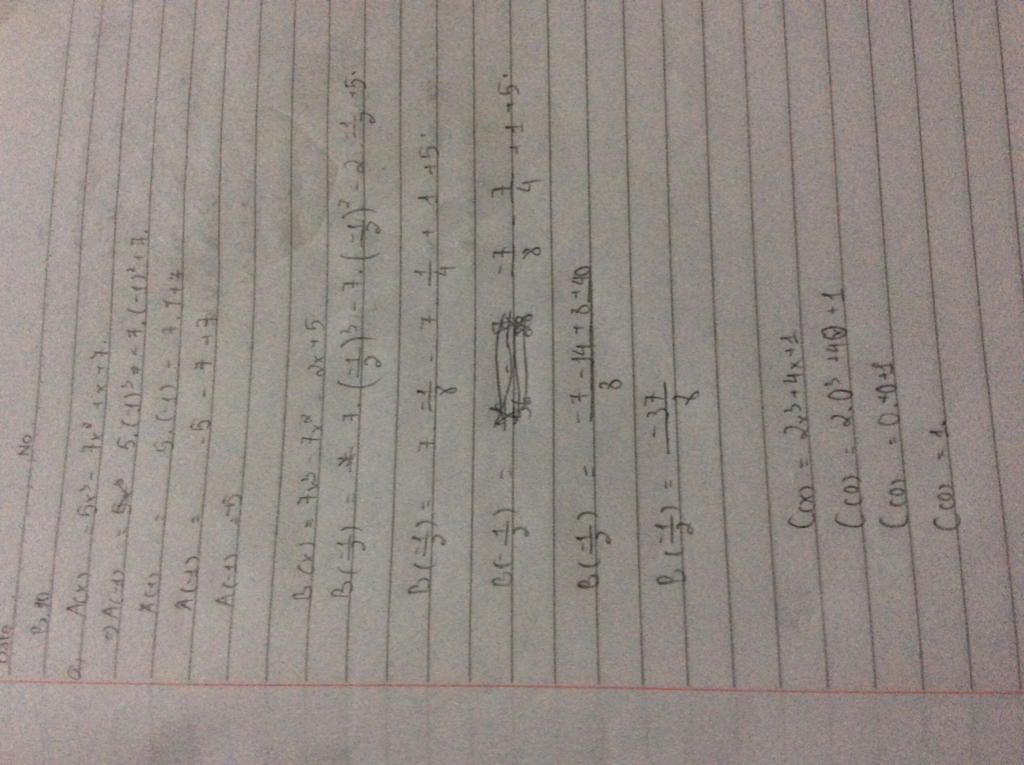 Date No
B 10
a, A(x) = 5x³ - 7x² + x + 7.
=> A(-1) = 5.(-1)³ - 7.(-1)² + 7.
A(-1) = 5.(-1) - 7.1 + 7
A(-1) = -5 - 7 + 7
A(-1) = -5
B(x) = 7x³ - 7x² - 2x + 5
B(-1/2) = 7.(-1/2)³ - 7.(-1/2)² - 2.-1/2 + 5.
B(-1/2) = 7.-1/8 - 7.1/4 + 1 + 5.
B(-1/2) = -7/8 - 7/4 + 1 + 5.
B(-1/2) = -7 - 14 + 8 + 40/8
B(-1/2) = -37/8
C(x) = 2x³ + 4x + 1
C(0) = 2.0³ + 4.0 + 1
C(0) = 0.+0+1
C(0) = 1.